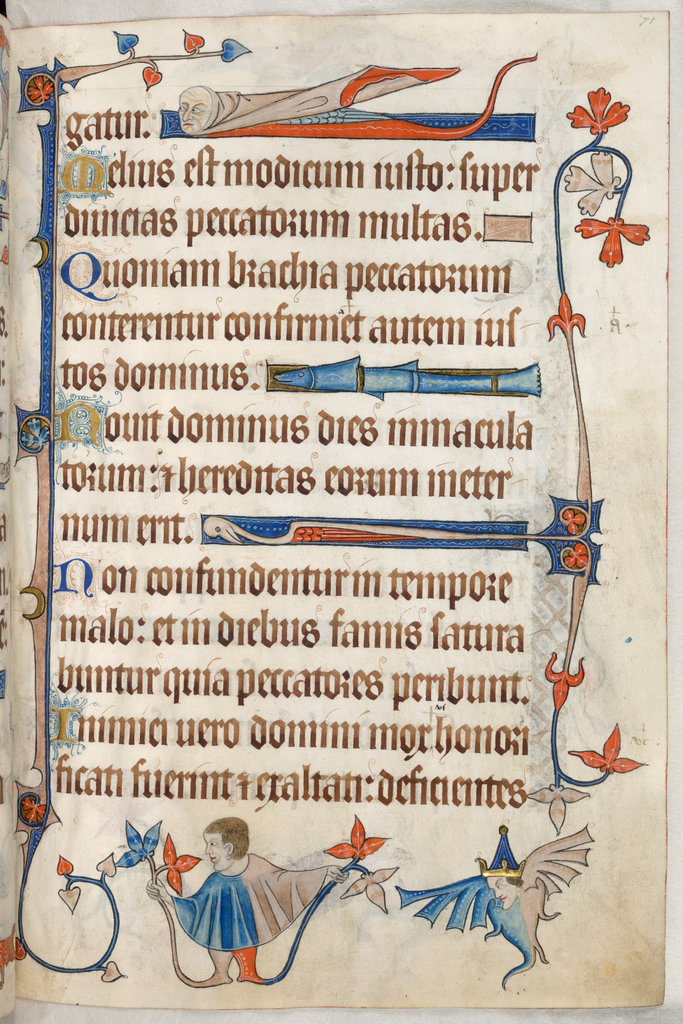 71
gatur.
Melius est modicum iusto: super
diuicias peccatorum multas.
Quoniam brachia peccatorum
conterentur confirmet autem ius
a
tos dominus.
Nouit dominus dies inmacula
torum: ⁊ hereditas eorum ineter
num erit.
Non confundentur in tempore
malo: et in diebus famis satura
buntur quia peccatores peribunt.
Inimici uero domini mox honori
ficati fuerint ⁊ exaltati: deficientes